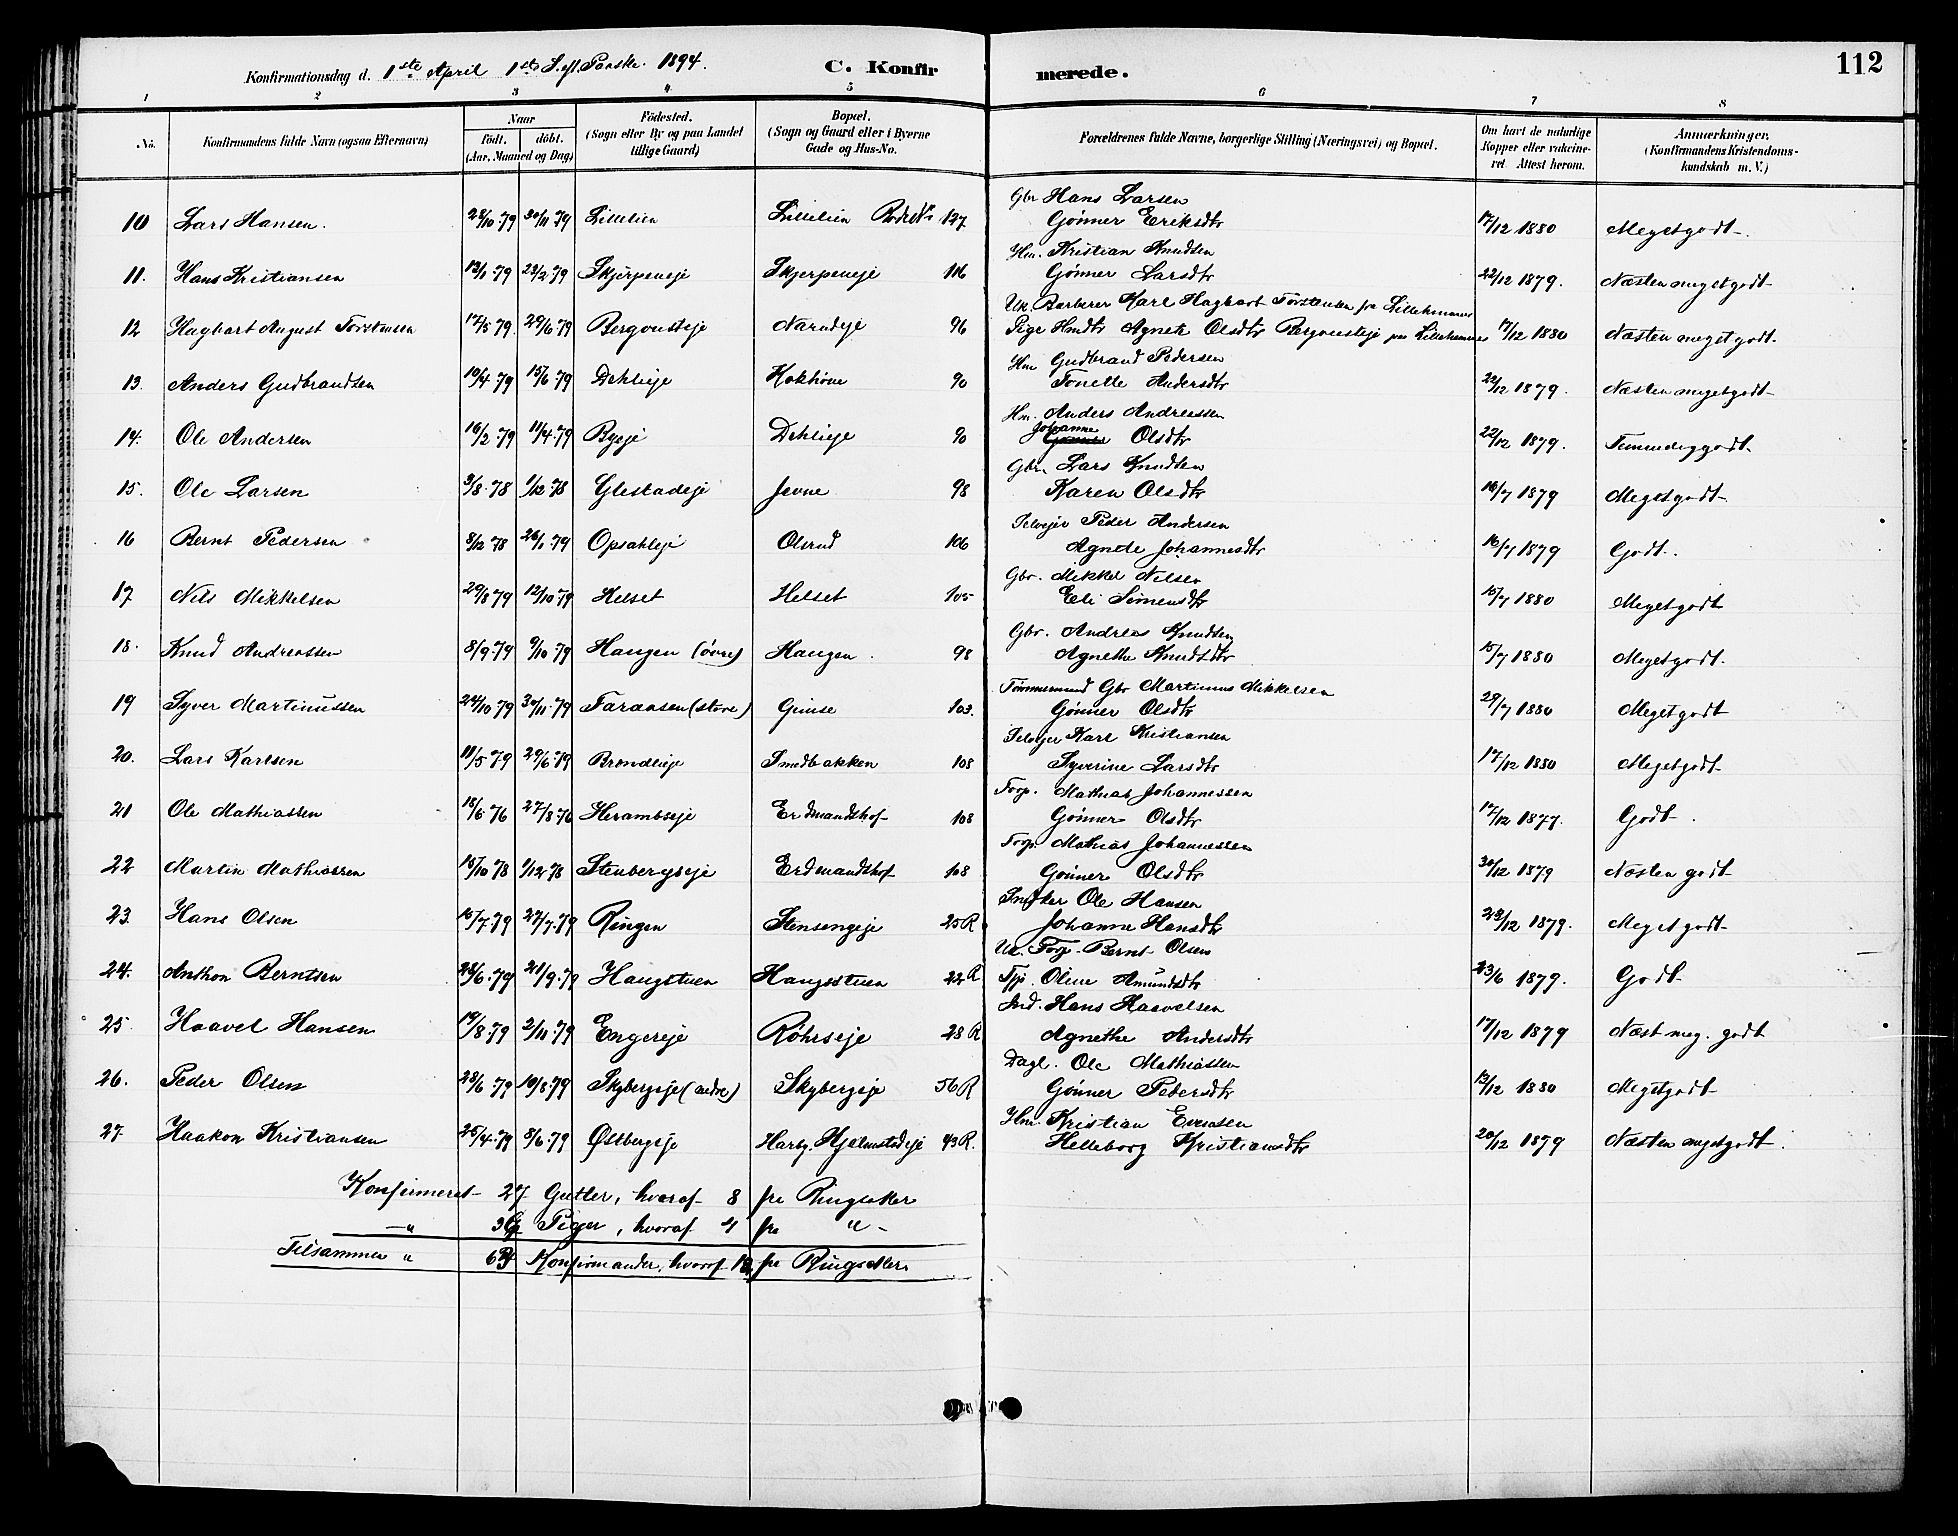 112
Konfirmationsdag d. 1ste April 1ste S. ef. Paaske 1894. C. Konfirmerede.
1 2 3 4 5 6 7 8
No. Konfirmandens fulde Navn (ogsaa Efternavn) Naar født. døbt. (Aar, Maaned og Dag) Födested. (Sogn eller By og paa Landet tillige Gaard) Bopæl. (Sogn og Gaard eller i Byerne Gade og Hus-No. Forældrenes fulde Navne, borgerlige Stilling (Næringsvei) og Bopæl. Om havt de naturlige Kopper eller vaccineret. Attest herom. Anmærkninger. (Konfirmandens Kristendomskundskab m. V.)
Gbr Hans Larsen
10 Lars Hansen. 22/10 79 30/11 79 Lillelien Lillelien 127 Gønner Eriksdtr 17/12 1880 Megetgodt.
Hm. Kristian Knudsen
11. Hans Kristiansen 13/1 79 23/2 79 Skjerpeneje Skjerpeneje 116 Gønner Larsdtr 22/12 1879. Næsten megetgodt
Uk. Barberer Karl Haghart Torstensen fra Lillehammer
12 Haghart August Torstensen 17/5 79. 29/6 79 Bergouseje 96 Pige Agnete Olsdtr paa Lillehammer 17/12 1880 Næsten megetgodt.
Hm Gudbrand Pedersen
13. Anders Gudbrandsen 10/4 79 15/6 79 Dehlieje 90 Tonette Andersdtr 22/12 1879. Næsten megetgodt
Hm. Anders Andreassen
14. Ole Andersen 16/2 79 11/4 79 Byeje Dehlieje 90 Johanne Olsdtr 22/12 1879. Temmeliggodt.
Gbr. Lars Knudsen
15. Ole Larsen 3/8 78 1/12 78 Glestadeje Jevne 98 Karen Olsdtr 16/7 1879 Megetgodt
Selvejer Peder Andersen
16 Bernt Pedersen 8/12 78 26/1 79 Opsahleje Olsrud 106 Agnete Johannesdtr 16/7 1879 Godt.
Gbr. Mikkel Nilsen
17 Nils Mikkelsen 29/8 79 12/10 79 Helset Helset 105 Eli Simensdtr 15/7 1880 Megetgodt
Gbr. Andreas Knudsen
18. Knud Andreassen 8/9 79 9/10 79 Haugen (øvre) Haugen. 98 Agnethe Knudsdtr 15/7 1880 Megetgodt.
Tømmermand Gbr Martinus Mikkelsen
19 Syver Martinussen 24/10 79 30/11 79 Faransen (store) Gimse 103. Gønner Olsdtr 29/7 1880 Megetgodt
Selvejer Karl Kristiansen
20. Lars Karlsen 11/5 79 29/6 79 Brøndlieje Smedbakken 108 Syverine Larsdtr 17/12 1880 Megetgodt
Forp. Mathias Johannessen
21 Ole Mathiassen 18/6 76 27/8 76 Herambseje Erdmandshof 108 Gønner Olsdtr 17/12 1877. Godt.
Forp. Mathias Johannessen
22 Martin Mathiassen 15/10 78 1/12 78 Stenbergseje Erdmandshof 108 Gønner Olsdtr 30/12 1879 Næsten godt
Snedker Ole Hansen
23. Hans Olsen 16/7 79 27/7 79 Ringen Stensengeje 25 R Johanne Hansdtr 23/12 1879. Megetgodt
Uk. Forp. Bernt Olsen
24. Anthon Berntsen 22/6 79 21/9 79 Haugstuen Haugsstuen 22 R Tjp. Oline Amundsdtr 23/6 1879. Godt
Ind. Hans Haavelsen
25 Haavel Hansen 19/8 79 2/11 79 Engereje Røhrseje 28 R Agnethe Andersdtr 17/12 1879 Næst meg. godt
Dagl. Ole Mathiassen
26. Peder Olsen 23/6 79 10/8 79 Skybergseje (nedre) Skybergseje 56 R Gønner Pedersdtr 13/12 1880 Megetgodt
Hm Kristian Evensen
27. Haakon Kristiansen 25/4 79 8/6 79 Østbergseje Hjelmstadeje 43 R. Helleborg Kristiansdtr 20/12 1879 Næsten megetgodt.
Konfirmeret 27 Gutter, hvoraf 8 fra Ringsaker
— " 36 Piger, hvoraf 4 fra — " —
Tilsammen " 63 Konfirmander, hvoraf 12 fra Ringsaker